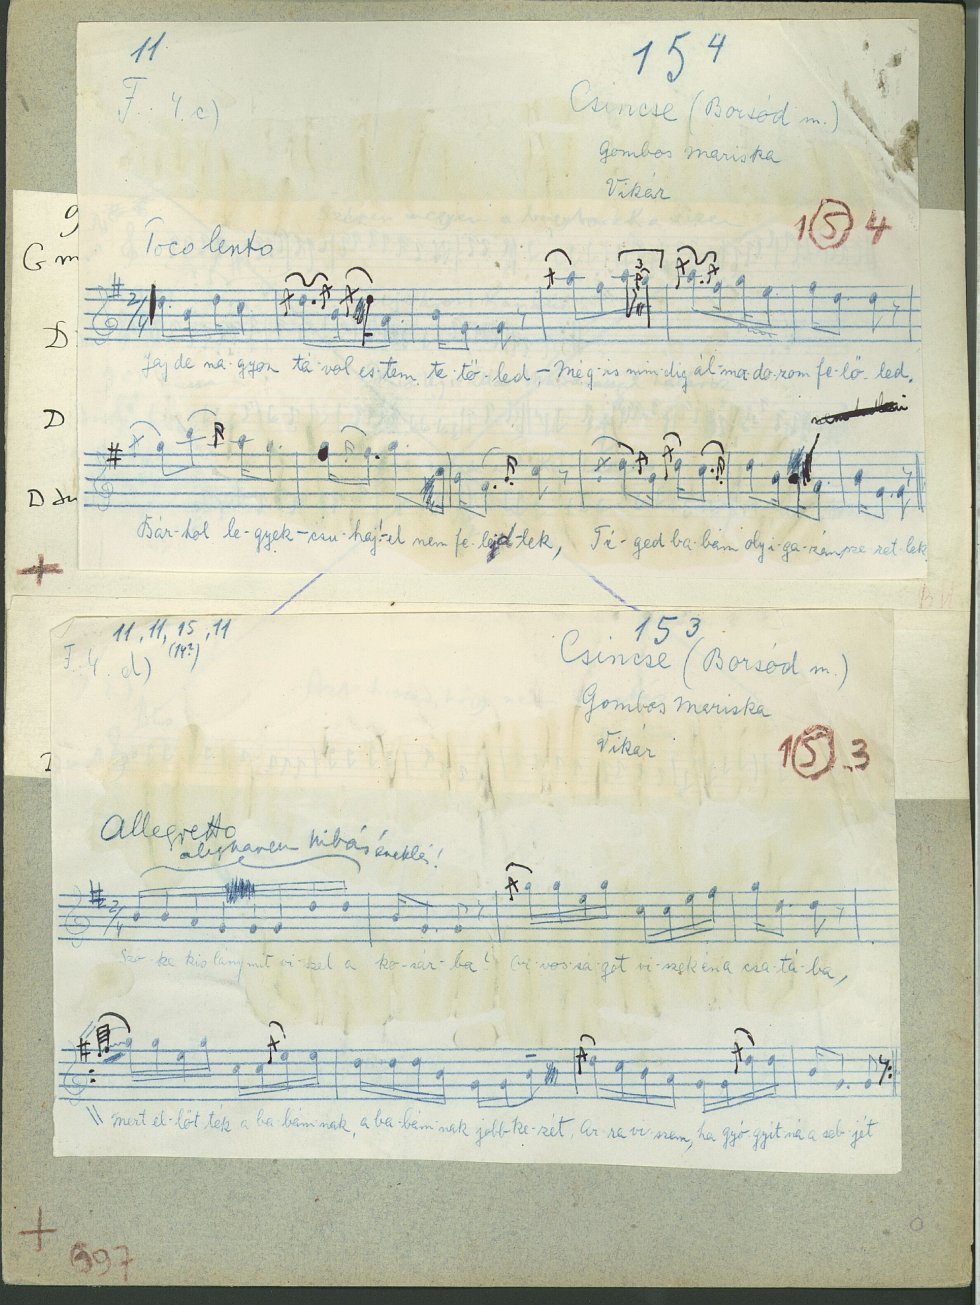 11
15 4
F. 4. c)
Csincse (Borsód m.)
Gombos Mariska
Vikár
1 5 4
Poco lento
G m
D
Jaj de na-gyon tá-vol es-tem te-tő-led, – Még-is min-dig ál-ma-do-zom fe-lő-led.
D
Bár-hol le-gyek – csu-haj! – el nem fe-lejt-lek, Té-ged ba-bám oly i-ga-zán sze-ret-lek
11, 11, 15, 11
(14?)
15 3
F. 4. d)
Csincse (Borsód m.)
Gombos Mariska
Vikár
1 5 3
Allegretto
alighanem hibás éneklés!
Sző-ke kis lány mit vi-szel a ko-sár-ba!
vi-szek én a csa-tá-ba,
mert el-lőt-ték a ba-bám-nak, a ba-bám-nak jobb ke-zét, Ar-ra vi-szem, ha gyó-gyít-ná a seb-jét
697